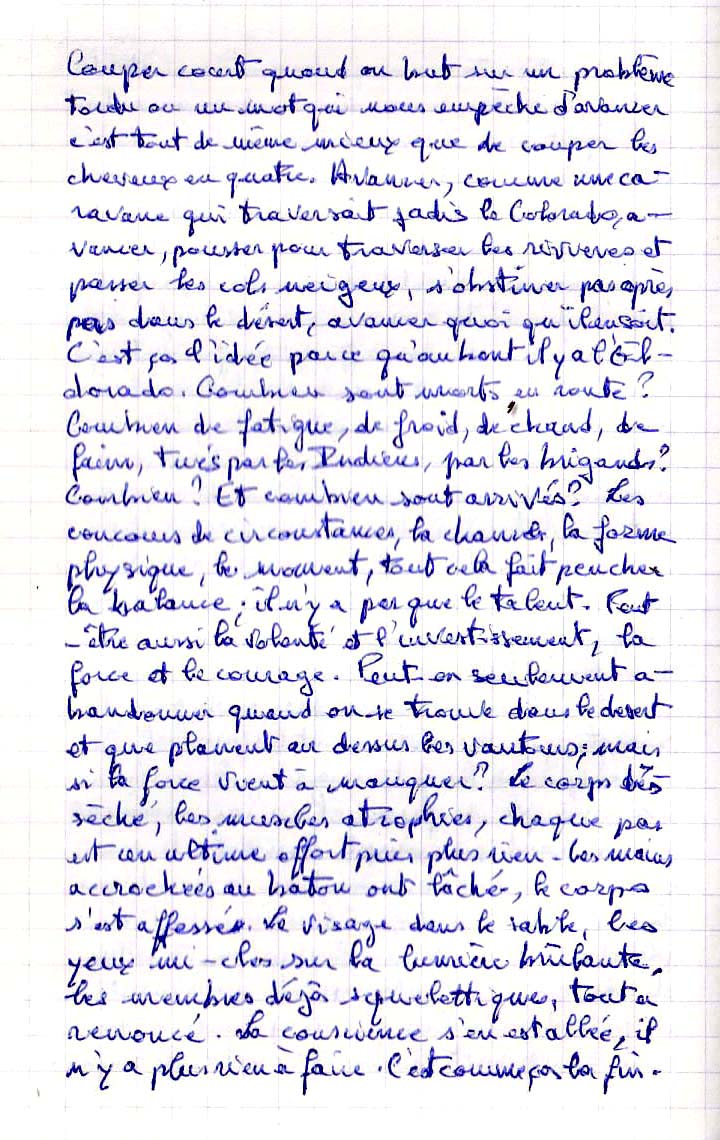 Couper court quand on but sur un problème
tordu ou un mot qui nous empêche d'avancer
c'est tout de même mieux que de couper les
cheveux en quatre. Avancer, comme une ca-
ravane qui traversait jadis le Colorado, a-
vancer, pousser pour traverser les rivveres et
passer les cols neigeux, s'obstiner pas après
pas dans le désert, avancer quoi qu'il en soit.
C'est ça l'idée parce qu'au bout il y a l'El-
dorado. Combien sont morts en route ?
Combien de fatigue, de froid, de chaud, de
faim, tués par les Indiens, par les brigands ?
Combien ? Et combien sont arrivés ? Les
concours de circonstances, la chance, la forme
physique, le moment, tout cela fait pencher
la balance ; il n'y a pas que le talent. Peut
-être aussi la volonté et l'investissement, la
force et le courage. Peut-on seulement a-
bandonner quand on se trouve dans le désert
et que planent au dessus les vautours ; mais
si la force vient à manquer ? Le corps dés
séché, les muscles atrophiés, chaque pas
est un ultime effort puis plus rien - Les mains
accrochées au bâton ont lâché, le corps
s'est affessé. Le visage dans le sable, les
yeux mi-clos sur la lumière brûlante,
les membres déjà squelettiques, tout a
renoncé. La conscience s'en est allée, il
n'y a plus rien à faire. C'est comme ça la fin.